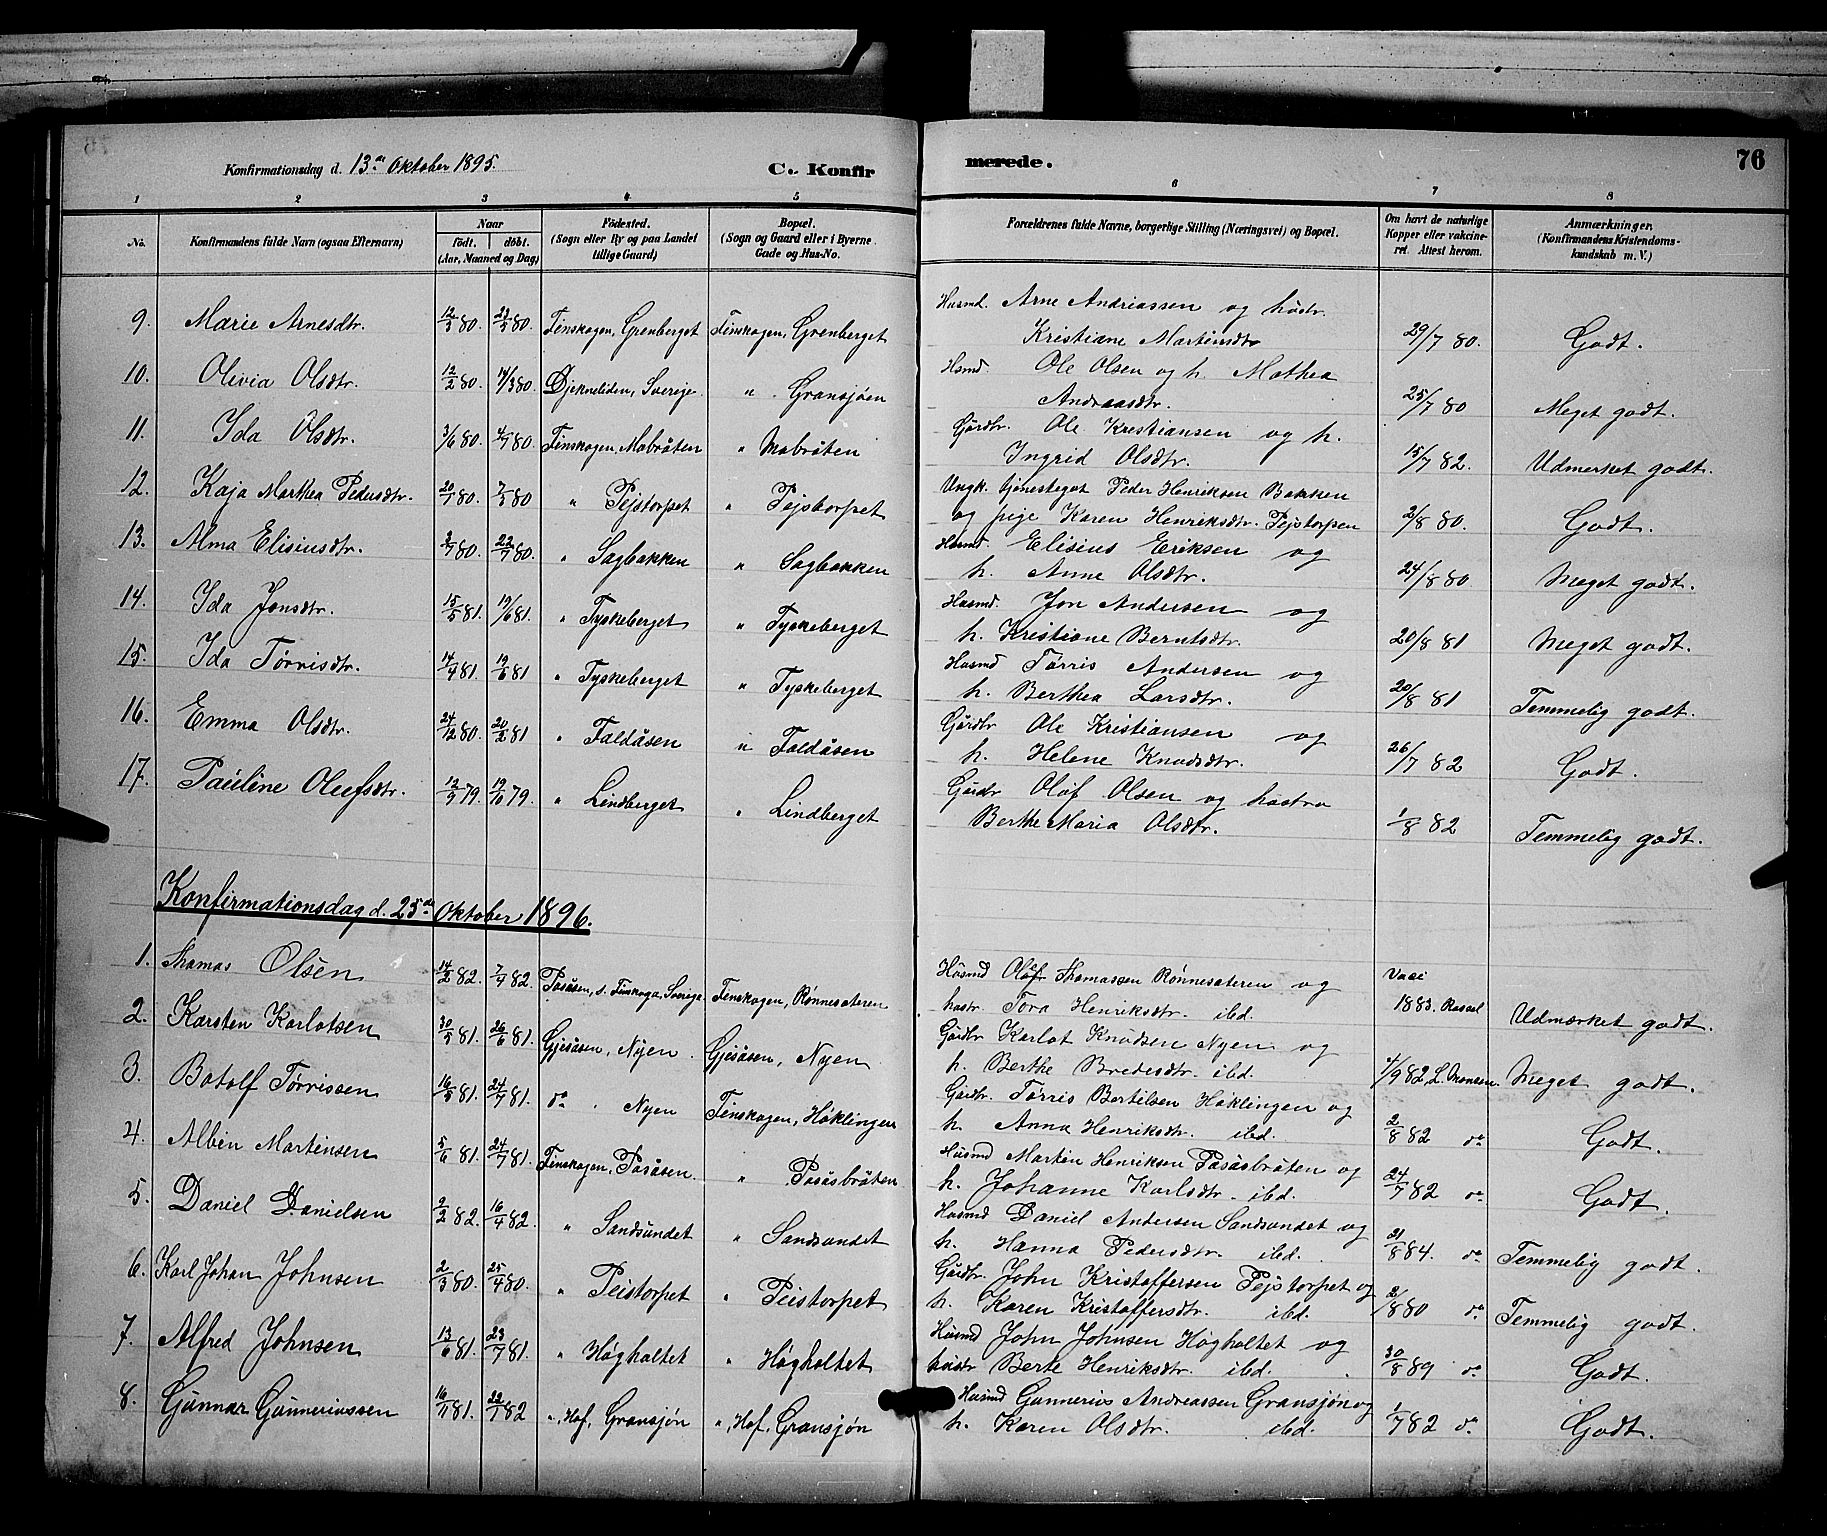 Konfirmationsdag d. 13de Oktober 1895. C. Konfirmerede. 76
1 2 3 4 5 6 7 8
No. Konfirmandens fulde Navn (ogsaa Efternavn) Naar født. døbt. (Aar, Maaned og Dag) Fødested. (Sogn eller By og paa Landet tillige Gaard) Bopæl. (Sogn og Gaard eller i Byerne Gade og Hus-No. Forældrenes fulde Navne, borgerlige Stilling (Næringsvei) og Bopæl. Om havt de naturlige Kopper eller vakcineret. Attest herom. Anmærkninger. (Konfirmandens Kristendomskundskab m. V.)
9. Marie Arnesdtr. 12/3 80. 23/5 80. Finskogen, Grenberget Finskogen, Grenberget Husmd. Arne Andriassen og hustr. Kristiane Martinsdtr 29/7 80. Godt.
10. Olivia Olsdtr. 12/2 80. 14/3 80. Djekneliden, Sverige. " Gransjøen Husmd. Ole Olsen og h. Mathea Andreasdtr. 25/7 80 Meget godt.
11. Ida Olsdtr. 3/6 80. 4/7 80. Finskogen, Mobråten " Mobråten Gårdbr. Ole Kristiansen og h. Ingrid Olsdtr. 15/7 82. Udmerket godt.
12. Kaja Marthea Pedersdtr. 20/1 80. 7/3 80 " Pejstorpet " Pejstorpet Ungk. tjenestegut Peder Henriksen Bakken og pige Karen Henriksdtr. Pejstorpen 2/8 80. Godt.
13. Alma Elisiusdtr. 2/7 80. 22/7 80. " Sagbakken " Sagbakken Husmd. Elisius Eriksen og h. Anne Olsdtr. 24/8 80 Meget godt.
14. Ida Jonsdtr. 15/5 81. 19/6 81. " Tyskeberget " Tyskeberget Husmd. Jon Andersen og h. Kristiane Berntsdtr. 20/8 81 Meget godt.
15. Ida Tørrisdtr. 14/4 81. 19/6 81 " Tyskeberget " Tyskeberget Husmd Tørris Andersen og h. Berthea Larsdtr. 20/8 81 Temmelig godt.
16. Emma Olsdtr. 24/12 80. 20/2 81 " Faldåsen " Faldåsen Gårdbr Ole Kristiansen og h. Helene Knudsdtr. 26/7 82 Godt.
17. Pauline Olufsdtr. 12/9 79. 19/10 79. " Lindberget " Lindberget Gårdbr Oluf Olsen og hustru Berthe Maria Olsdtr. 1/8 82 Temmelig godt.
Konfirmationsdag d. 25de Oktober 1896.
1. Thomas Olsen 14/2 82. 7/4 82. Posåsen, s. Finskoga, Sverige Finskogen, Rønnesæteren Husmd Olof Thomassen Rønnesæteren og hustr. Tora Henriksdtr. ibd. Vacc 1883. Udmærket godt.
2. Karsten Karlotsen 30/5 81. 26/6 81. Gjesåsen, Nyen Gjesåsen, Nyen Gårdbr Karlot Knudsen Nyen og h. Berthe Bredesdtr. ibd. 1/9 82, L. Monsen Meget godt.
3. Botolf Tørrissen 16/5 81. 24/7 81. do " Nyen Finskogen, Høklingen Gårdbr. Tørris Bertilsen Høklingen og h. Anna Henriksdtr. ibd. 2/8 82 do Godt.
4. Albin Martinsen 5/6 81. 24/7 81. Finskogen, Posåsen. " Posåsbråten Husmd Martin Henriksen Posåsbråten og h. Johanne Karlsdtr. ibd. 24/7 82 do Godt.
5. Daniel Danielsen 2/2 82. 16/4 82. " Sandsundet " Sandsundet Husmd Daniel Andersen Sandsundet og h. Hanna Pedersdtr. ibd. 21/8 84. do Temmelig godt.
6. Karl Johan Johnsen 2/3 80. 25/4 80. " Peistorpet " Peistorpet Gårdbr. John Kristoffersen Pejstorpet og h. Karen Kristoffersdtr. ibd. 2/8 80 do Temmelig godt.
7. Alfred Johnsen 13/6 81. 23/7 81. " Høgholtet " Høgholtet Husmd John Johnsen Høgholtet og hustr Berte Henriksdtr. ibd. 30/8 89 do Godt.
8. Gunnar Gunneriussen 16/11 81. 22/1 82 ", Hof, Gransjøn ", Hof, Gransjøn Husmd Gunnerius Andreassen Gransjøn og h. Karen Olsdtr. ibd. 1/7 82 do Godt.